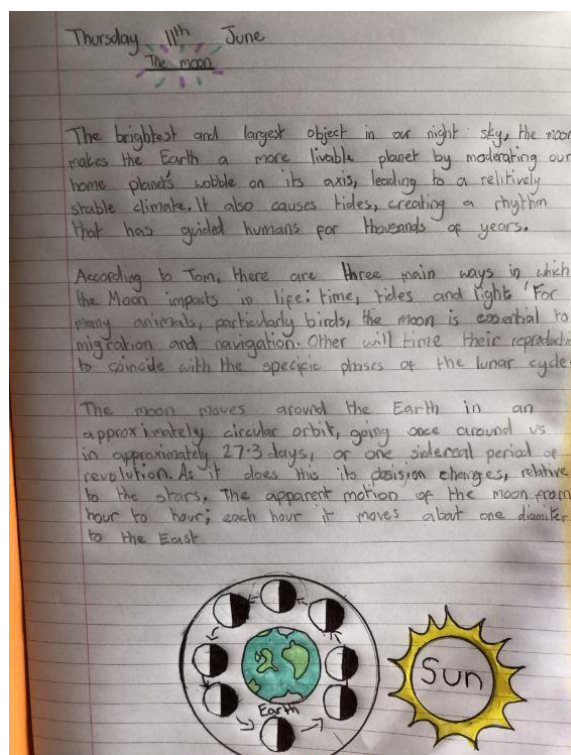 Thursday 11th June
The moon
The brightest and largest object in our night sky, the moon
makes the Earth a more livable planet by moderating our
home planet's wobble on its axis, leading to a relitively
stable climate. It also causes tides, creating a rhythm
that has guided humans for thousands of years.
According to Tom, there are three main ways in which
the Moon impacts in life: time, tides and light 'For
many animals, particularly birds, the moon is essential to
migration and navigation. Other will time their reproducti
to coincide with the specific phases of the lunar cycle.
The moon moves around the Earth in an
approximately circular orbit, going once around us
in approximately 27.3 days, or one sidereal period of
revolution. As it does this its posision changes, relative
to the stars. The apparent motion of the moon from
hour to hour; each hour it moves about one diamiter
to the East
Earth
Sun